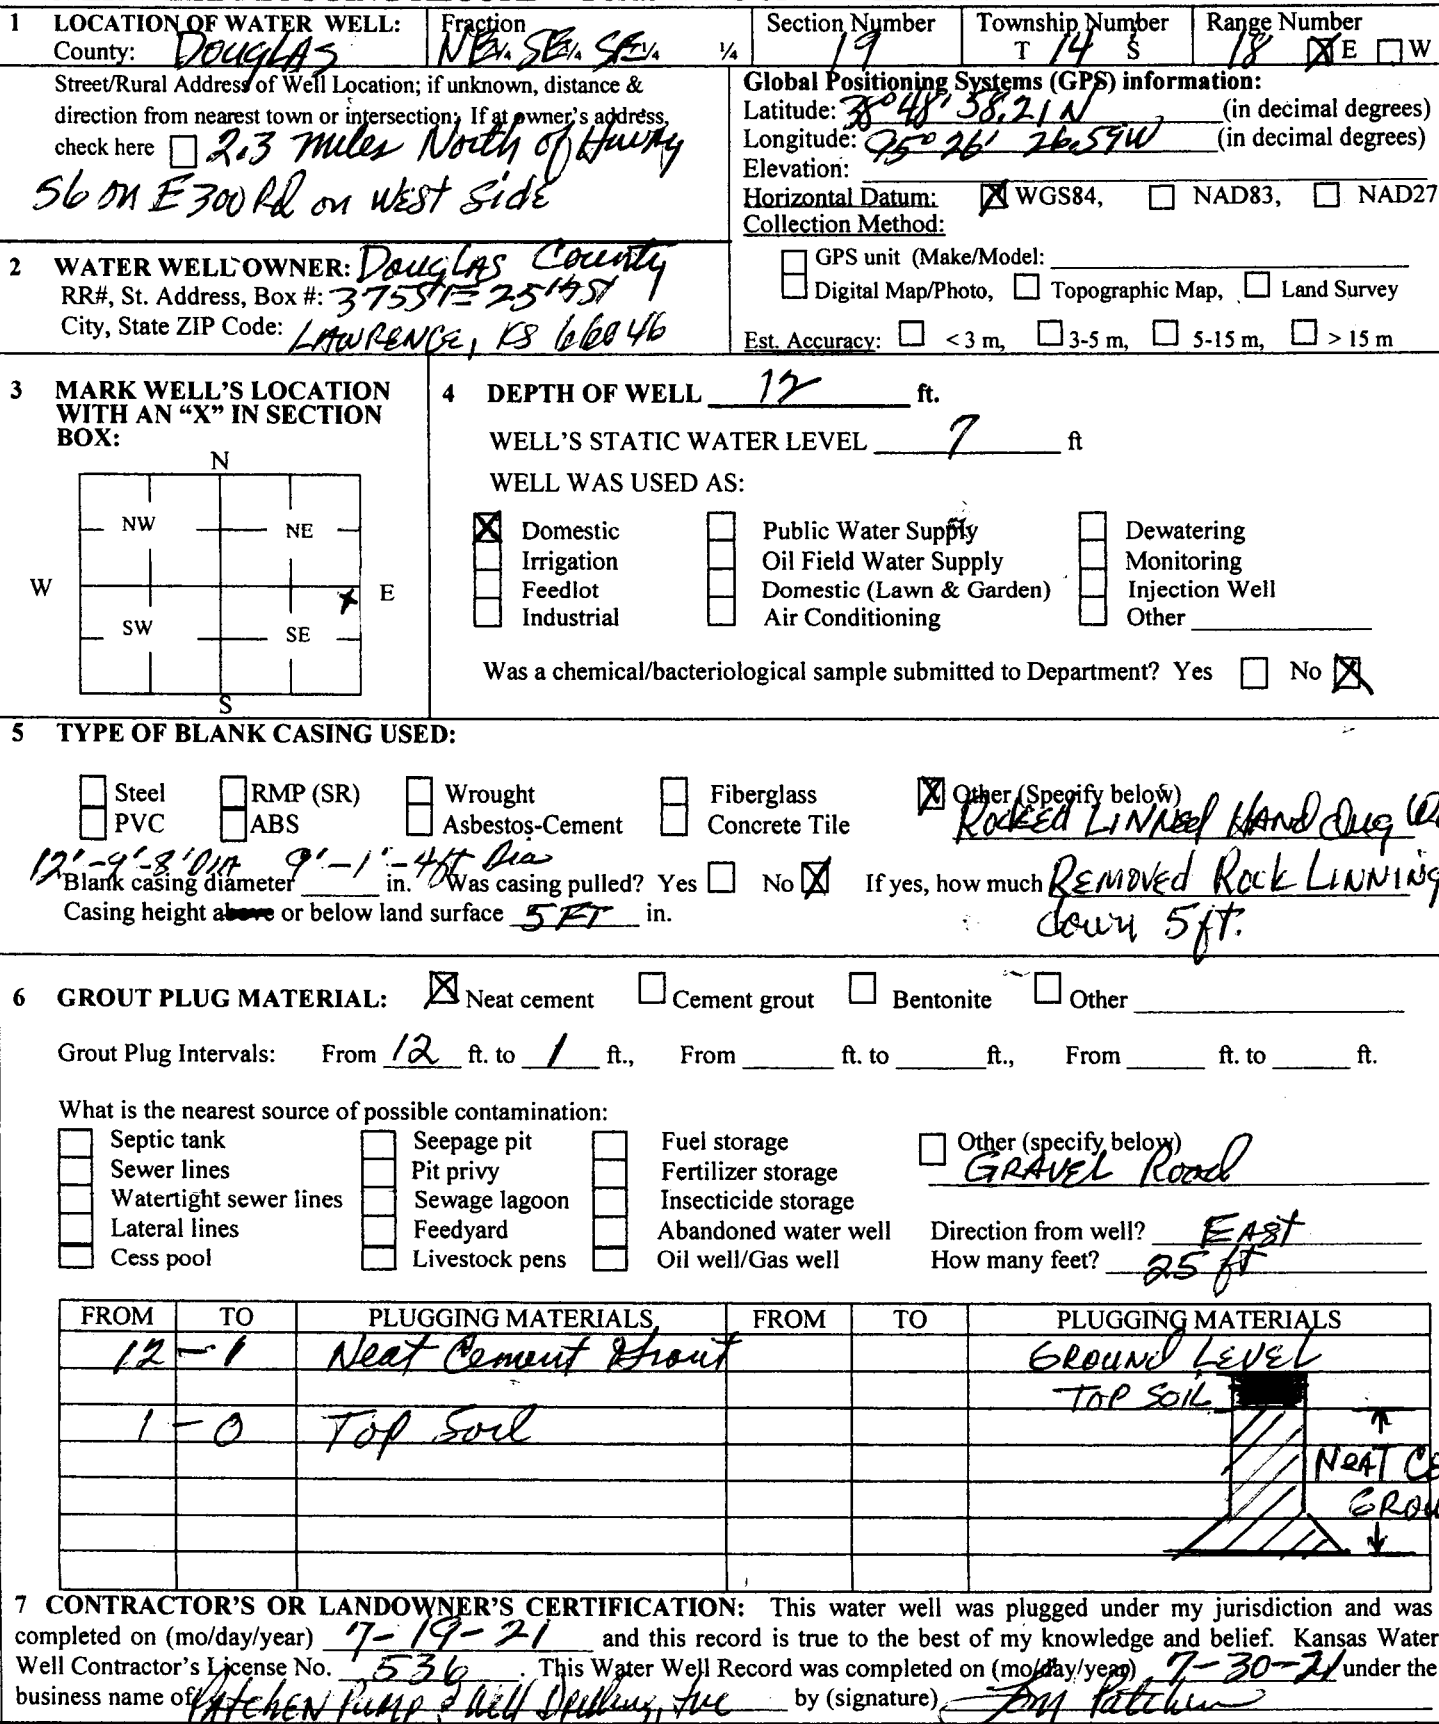 1 LOCATION OF WATER WELL: Fraction Section Number Township Number Range Number
County: Douglas NE¼ SE¼ SE¼ ¼ 19 T 14 S 18 ☒E ☐W
Street/Rural Address of Well Location; if unknown, distance &
direction from nearest town or intersection: If at owner's address,
check here ☐ 2.3 miles North of
56 on E 300 Rd on west side
Global Positioning Systems (GPS) information:
Latitude: 38° 48' 58.21 N (in decimal degrees)
Longitude: 95° 26' 26.59W (in decimal degrees)
Elevation:
Horizontal Datum: ☒ WGS84, ☐ NAD83, ☐ NAD27
Collection Method:
☐ GPS unit (Make/Model:
☐ Digital Map/Photo, ☐ Topographic Map, ☐ Land Survey
Est. Accuracy: ☐ < 3 m, ☐ 3-5 m, ☐ 5-15 m, ☐ > 15 m
2 WATER WELL OWNER: Douglas County
RR#, St. Address, Box #: 3755 E 25th St
City, State ZIP Code: LAWRENCE, KS 66046
3 MARK WELL'S LOCATION
WITH AN "X" IN SECTION
BOX:
N
NW NE
W X E
SW SE
S
4 DEPTH OF WELL 12 ft.
WELL'S STATIC WATER LEVEL 7 ft
WELL WAS USED AS:
☒ Domestic ☐ Public Water Supply ☐ Dewatering
☐ Irrigation ☐ Oil Field Water Supply ☐ Monitoring
☐ Feedlot ☐ Domestic (Lawn & Garden) ☐ Injection Well
☐ Industrial ☐ Air Conditioning ☐ Other
Was a chemical/bacteriological sample submitted to Department? Yes ☐ No ☒
5 TYPE OF BLANK CASING USED:
☐ Steel ☐ RMP (SR) ☐ Wrought ☐ Fiberglass ☒ Other (Specify below)
☐ PVC ☐ ABS ☐ Asbestos-Cement ☐ Concrete Tile Rocked Linned HAND dug
12'-9'-8' DIA 9'-1'-4ft Dia
Blank casing diameter in. Was casing pulled? Yes ☐ No ☒ If yes, how much REMOVED ROCK LINNING
Casing height above or below land surface 5 FT in. down 5 ft.
6 GROUT PLUG MATERIAL: ☒ Neat cement ☐ Cement grout ☐ Bentonite ☐ Other
Grout Plug Intervals: From 12 ft. to 1 ft., From ft. to ft., From ft. to ft.
What is the nearest source of possible contamination:
☐ Septic tank ☐ Seepage pit ☐ Fuel storage ☐ Other (specify below)
☐ Sewer lines ☐ Pit privy ☐ Fertilizer storage GRAVEL Road
☐ Watertight sewer lines ☐ Sewage lagoon ☐ Insecticide storage
☐ Lateral lines ☐ Feedyard ☐ Abandoned water well Direction from well? EAST
☐ Cess pool ☐ Livestock pens ☐ Oil well/Gas well How many feet? 25 ft
FROM TO PLUGGING MATERIALS FROM TO PLUGGING MATERIALS
12 - 1 Neat Cement Grout GROUND LEVEL
TOP SOIL
1 - 0 Top Soil
NEAT CE
GROU
7 CONTRACTOR'S OR LANDOWNER'S CERTIFICATION: This water well was plugged under my jurisdiction and was
completed on (mo/day/year) 7-19-21 and this record is true to the best of my knowledge and belief. Kansas Water
Well Contractor's License No. 536. This Water Well Record was completed on (mo/day/year) 7-30-21 under the
business name of PATCHEN Pump & Well Drilling, Inc by (signature) Tom Patchen